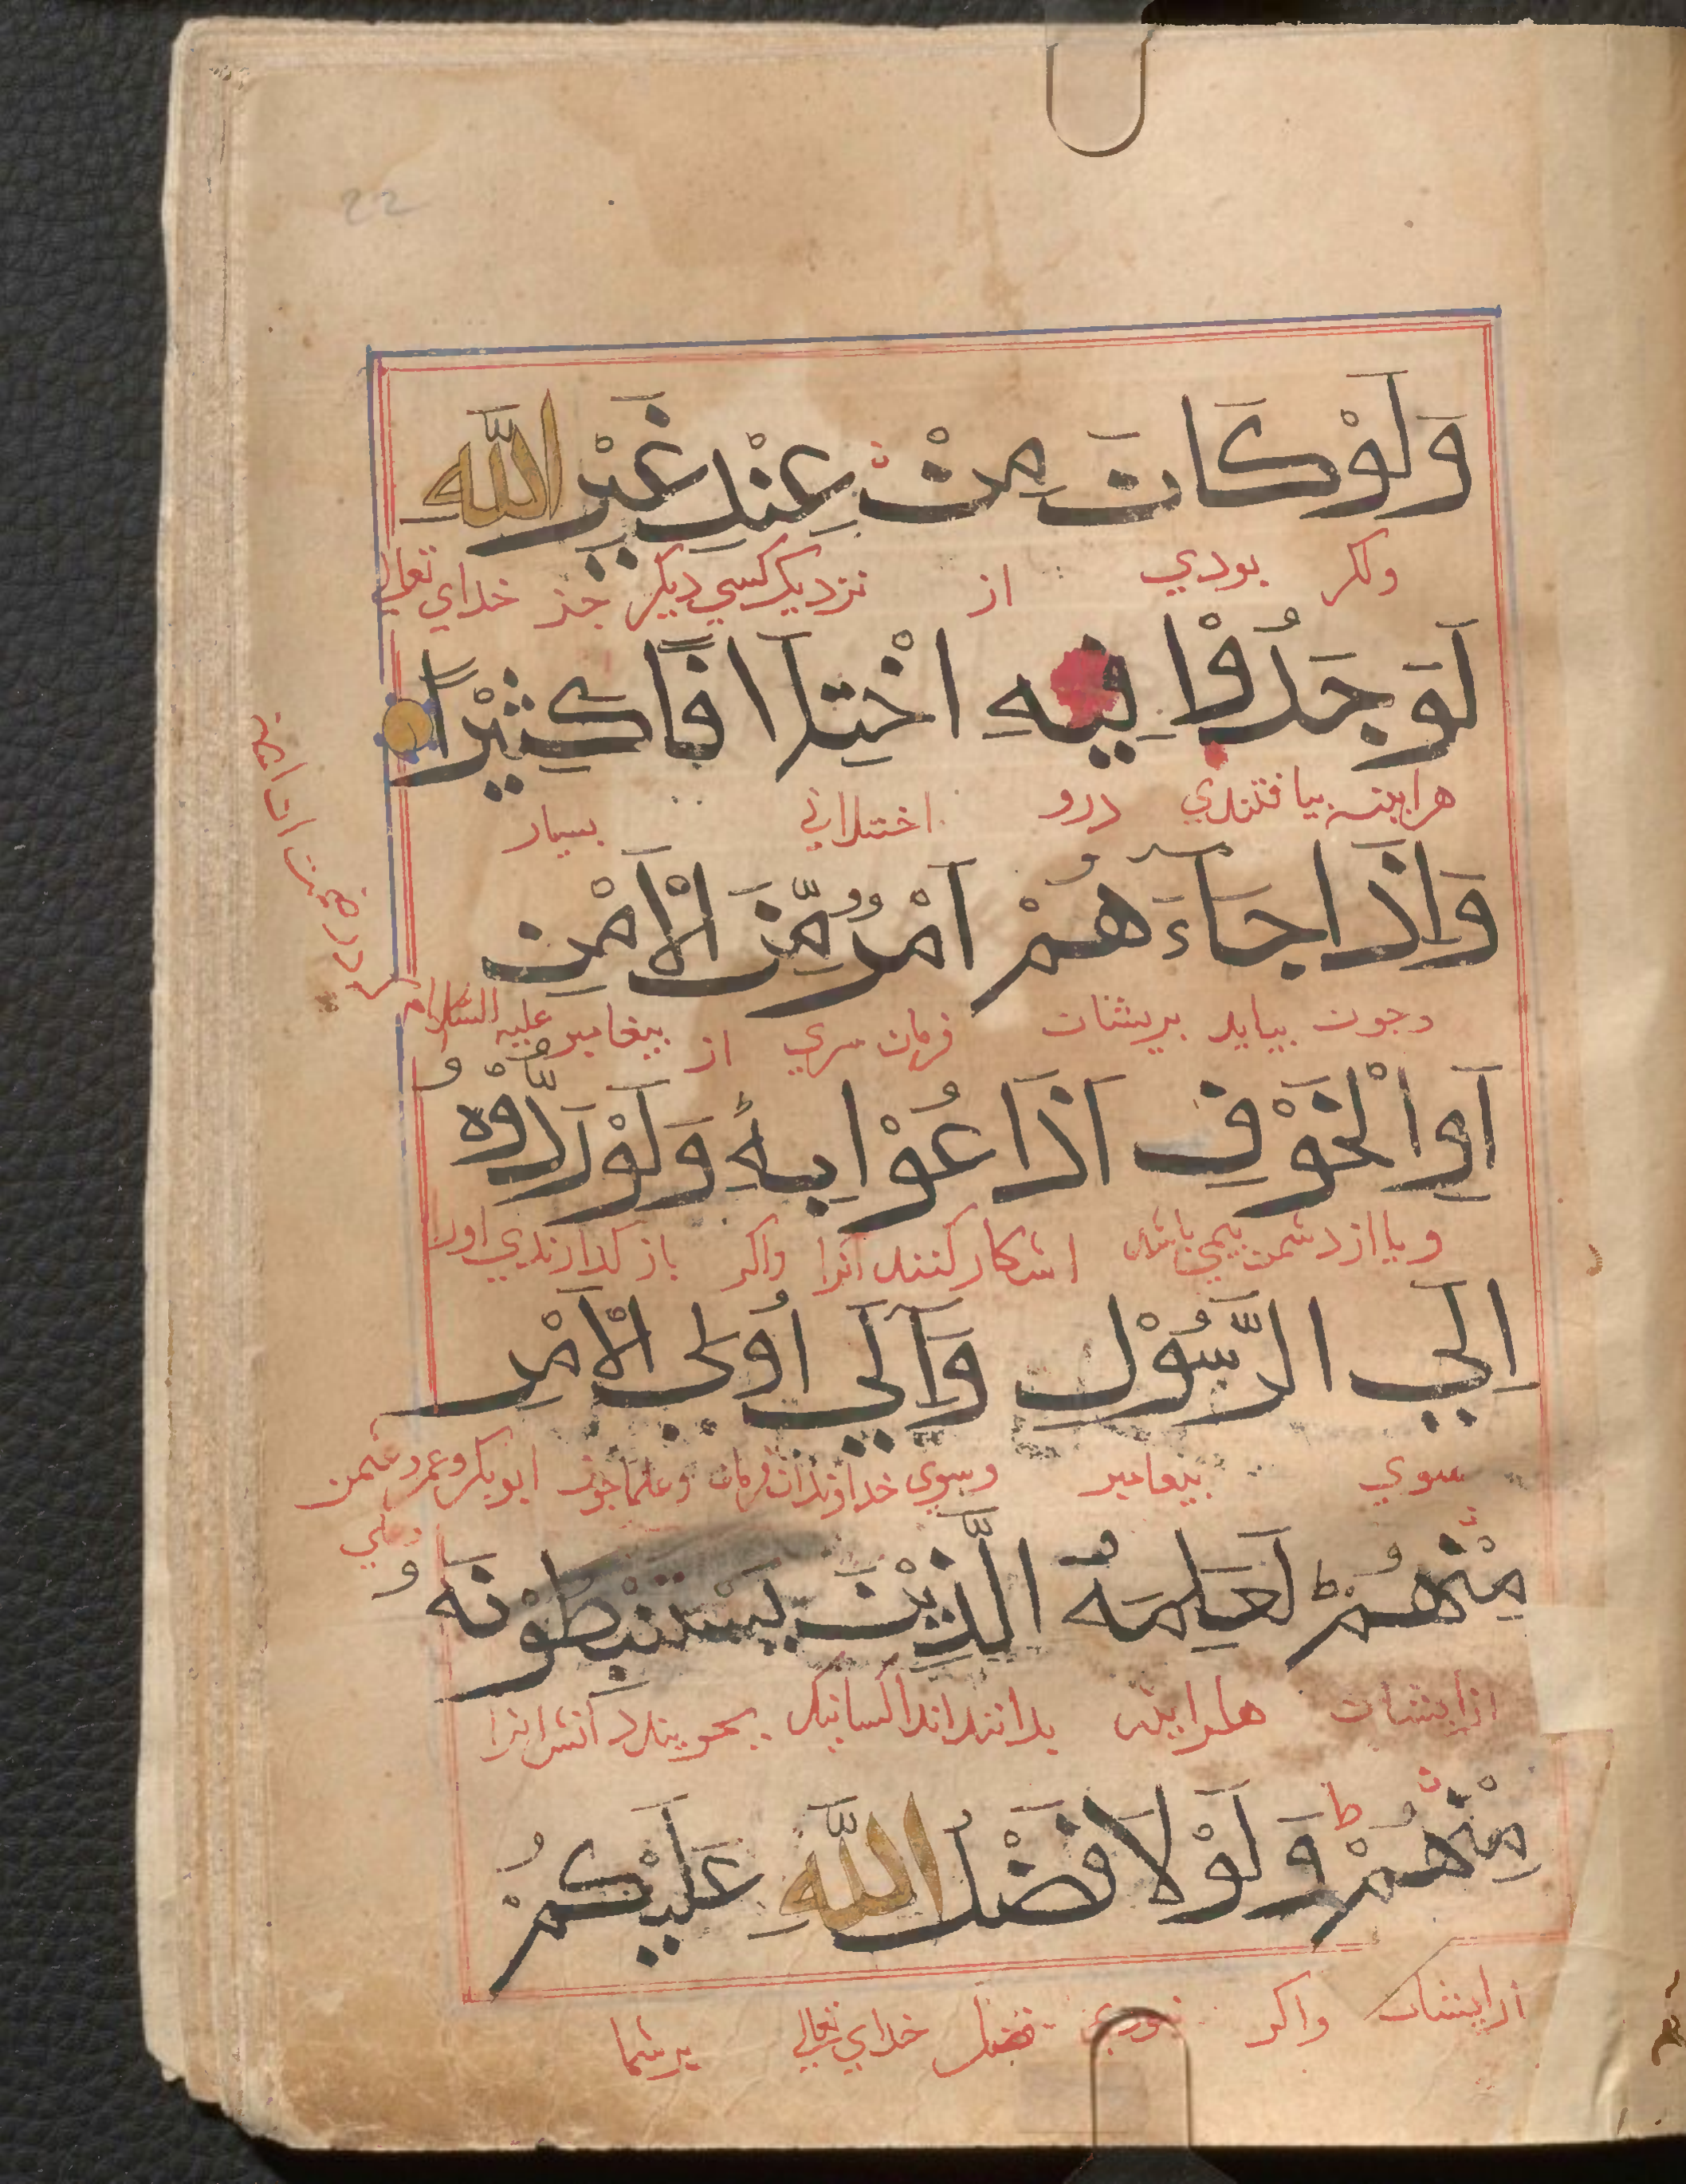 22
وَلَوْ كَانَ مِنْ عِنْدِ غَيْرِ اللّٰهِ
وكر بودي از نزديك كسي ديكر جز خداي تعالي
لَوَجَدُوْا فِيْهِ اخْتِلَافًا كَثِيْرًا
هراينه بيافتندي درو اختلافي بسيار
وَاِذَا جَاءَهُمْ اَمْرٌ مِّنَ الْاَمْنِ
وجون بيايد بريشان فرمان سري از بيغامبر عليه السلام
اَوِ الْخَوْفِ اَذَاعُوْا بِهٖ وَلَوْ رَدُّوْهُ
ويا از دشمن بيمي باشد اشكار كنند انرا واكر باز كذارندي اورا
اِلَي الرَّسُوْلِ وَاِلٰي اُولِي الْاَمْرِ
سوي بيغامبر وسوي خداوندان فرمان وعلما جون ابوبكر وعمر وعثمن
وعلي
مِنْهُمْ لَعَلِمَهُ الَّذِيْنَ يَسْتَنْبِطُوْنَهُ
ازايشان هراينه بدانند انرا كسانيكه بجويند دانش انرا
مِنْهُمْ وَلَوْلَا فَضْلُ اللّٰهِ عَلَيْكُمْ
ازايشان واكر نبودي فضل خداي تعالي برشما